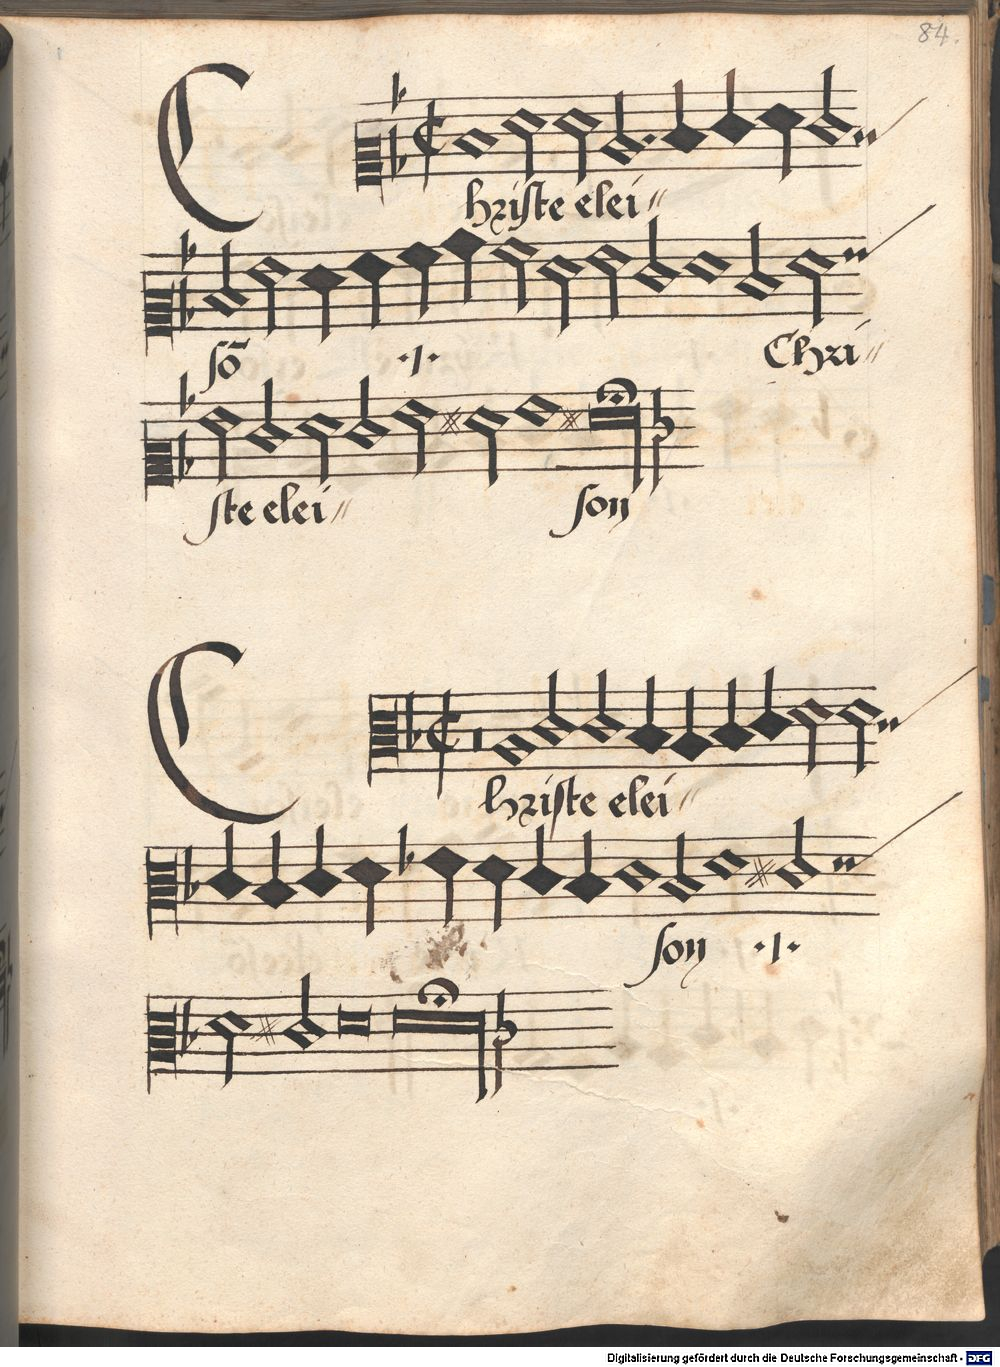 84.
Christe elei
sō ·I· Chri
ste elei son
Christe elei
son ·I·
Digitalisierung gefördert durch die Deutsche Forschungsgemeinschaft - DFG